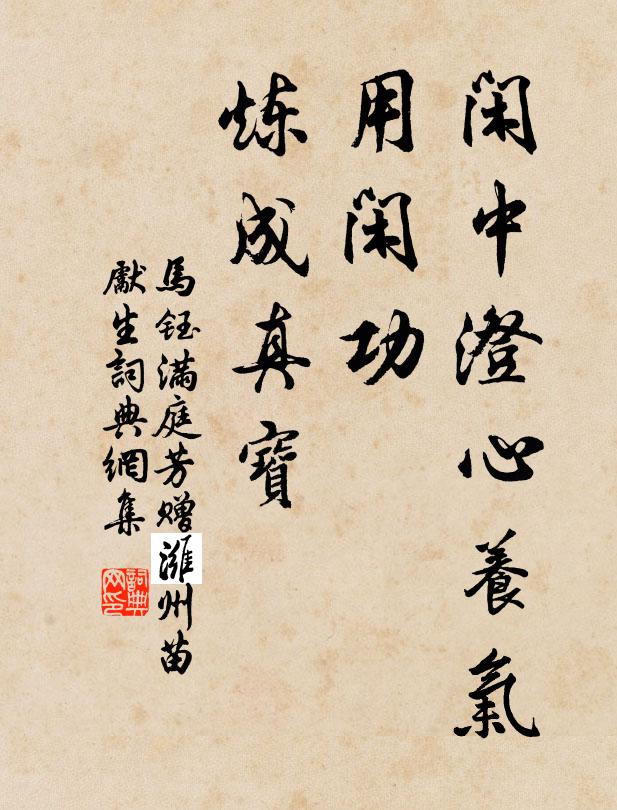 閑中澄心養氣
用閑功
炼成真寶
馬鈺满庭芳赠潍州苗
獻生詞典網集
詞典
网印